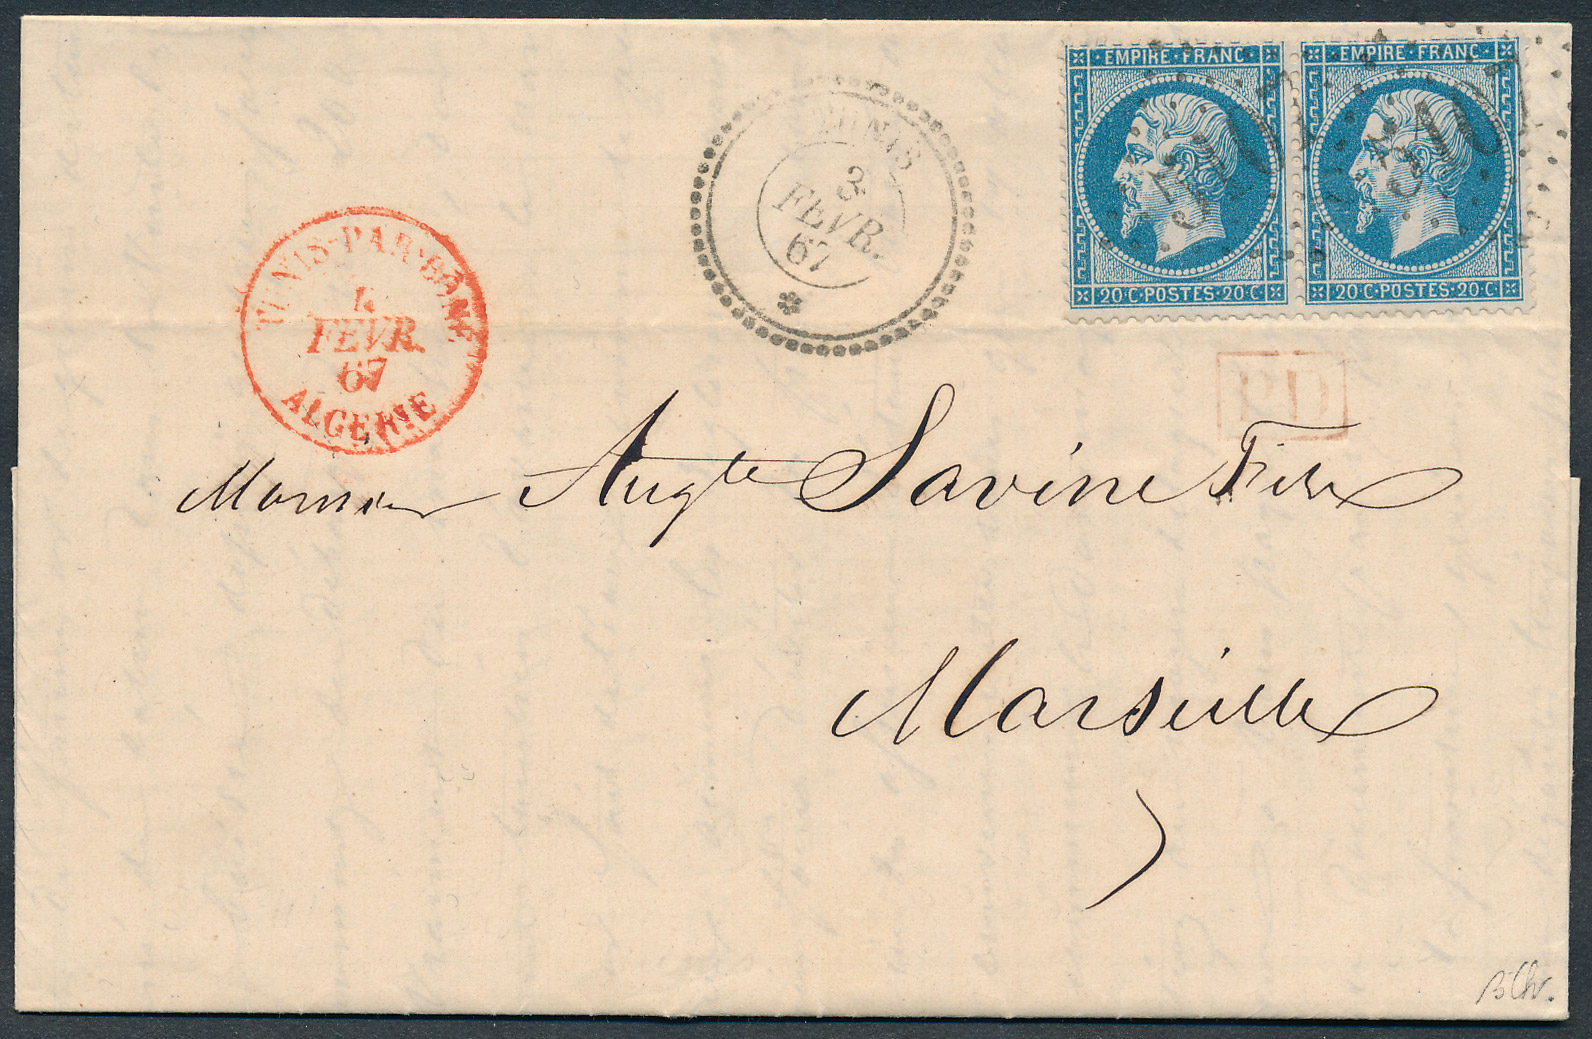 EMPIRE·FRANC
20·C·POSTES·20·C
EMPIRE·FRANC
20·C·POSTES·20·C
5107
5107
TUNIS
3
FEVR.
67
TUNIS-PAR-BÔNE
4
FEVR.
67
ALGERIE
PD
Monsieur Augte Savine Fils
Marseille